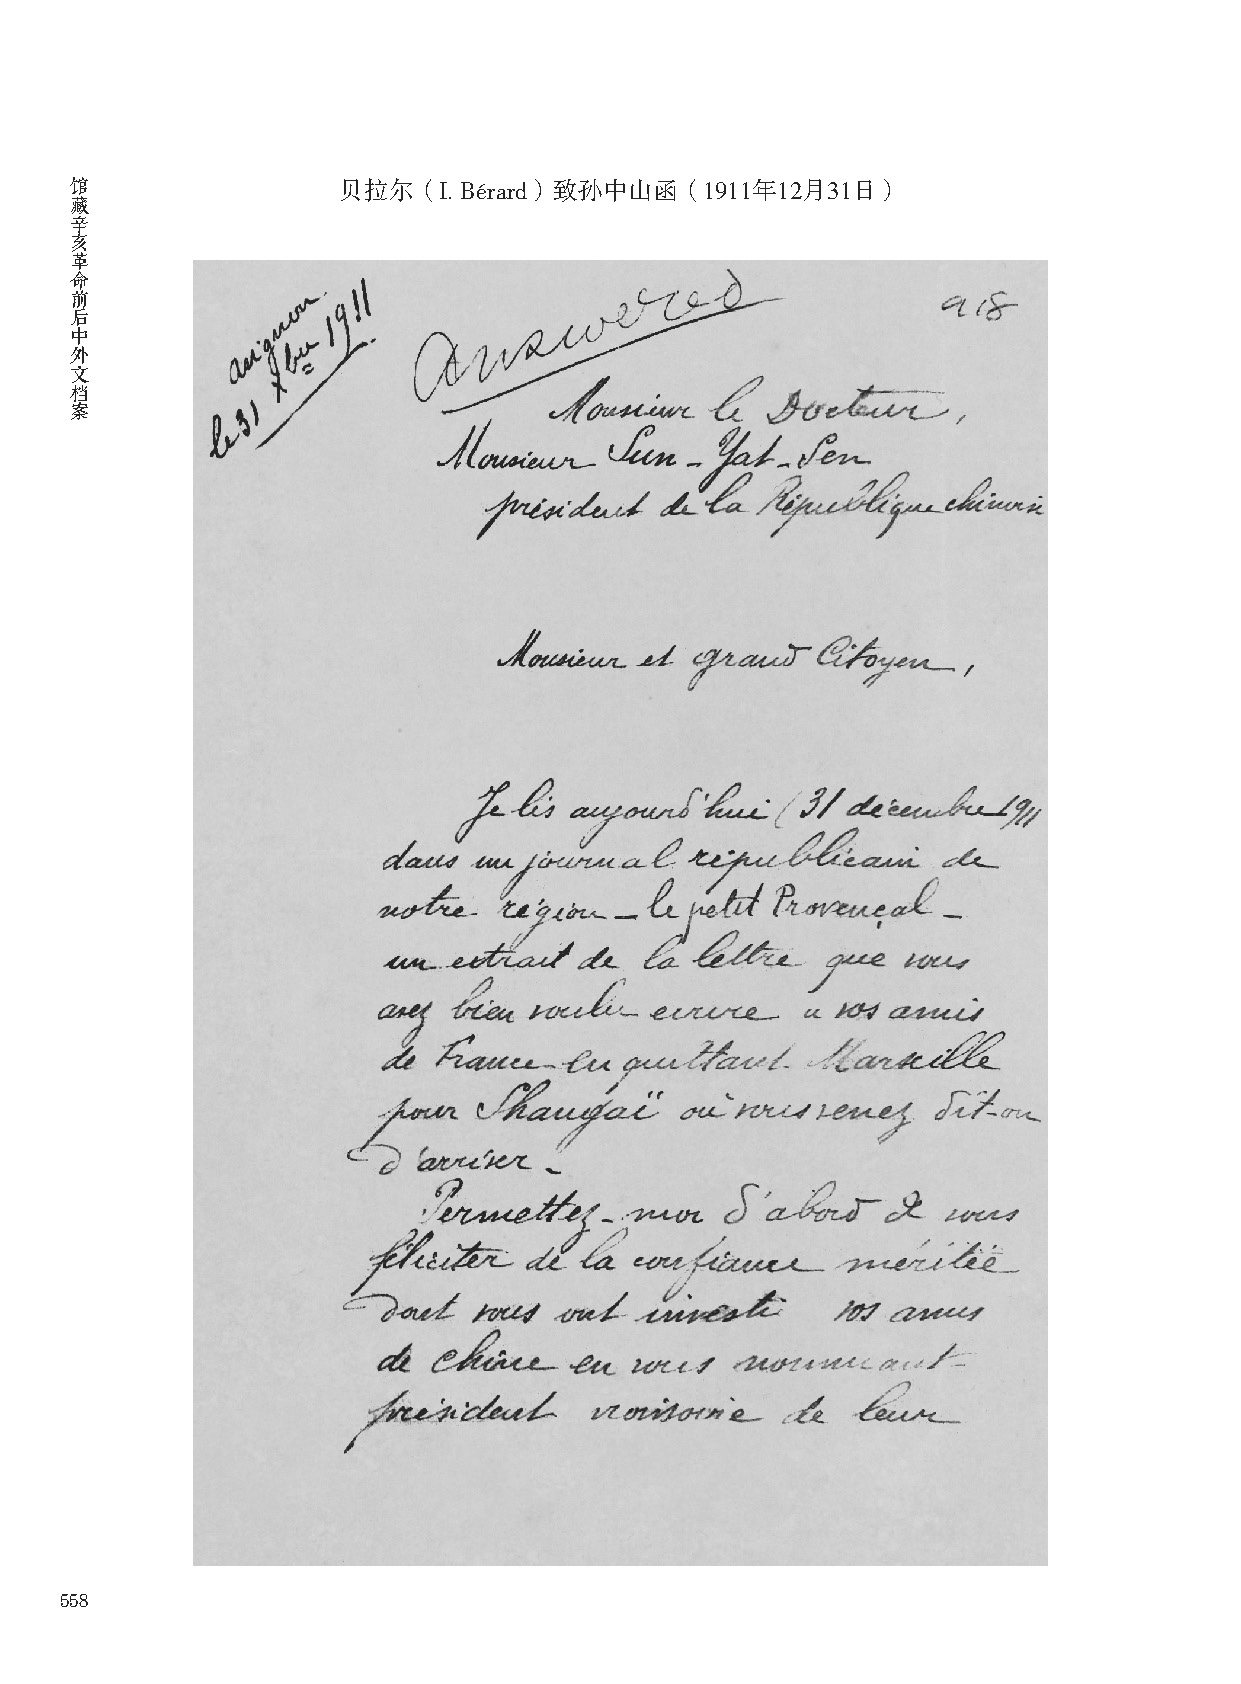 馆藏辛亥革命前后中外文档案
贝拉尔（I. Bérard）致孙中山函（1911年12月31日）
avignon
le 31 Xbre 1911
Answered
918
Monsieur le Docteur,
Monsieur Sun-Yat-Sen
président de la République chinoise
Monsieur et grand Citoyen,
Je lis aujourd'hui (31 décembre 1911
dans un journal républicain de
notre région – le petit Provençal –
un extrait de la lettre que vous
avez bien voulu ecrire a vos amis
de France en quittant Marseille
pour Shangaï où vous venez dit-on
d'arriver –
Permettez-moi d'abord de vous
féliciter de la confiance méritée
dont vous ont investi vos amis
de Chine en vous nommant
président provisoire de leur
558